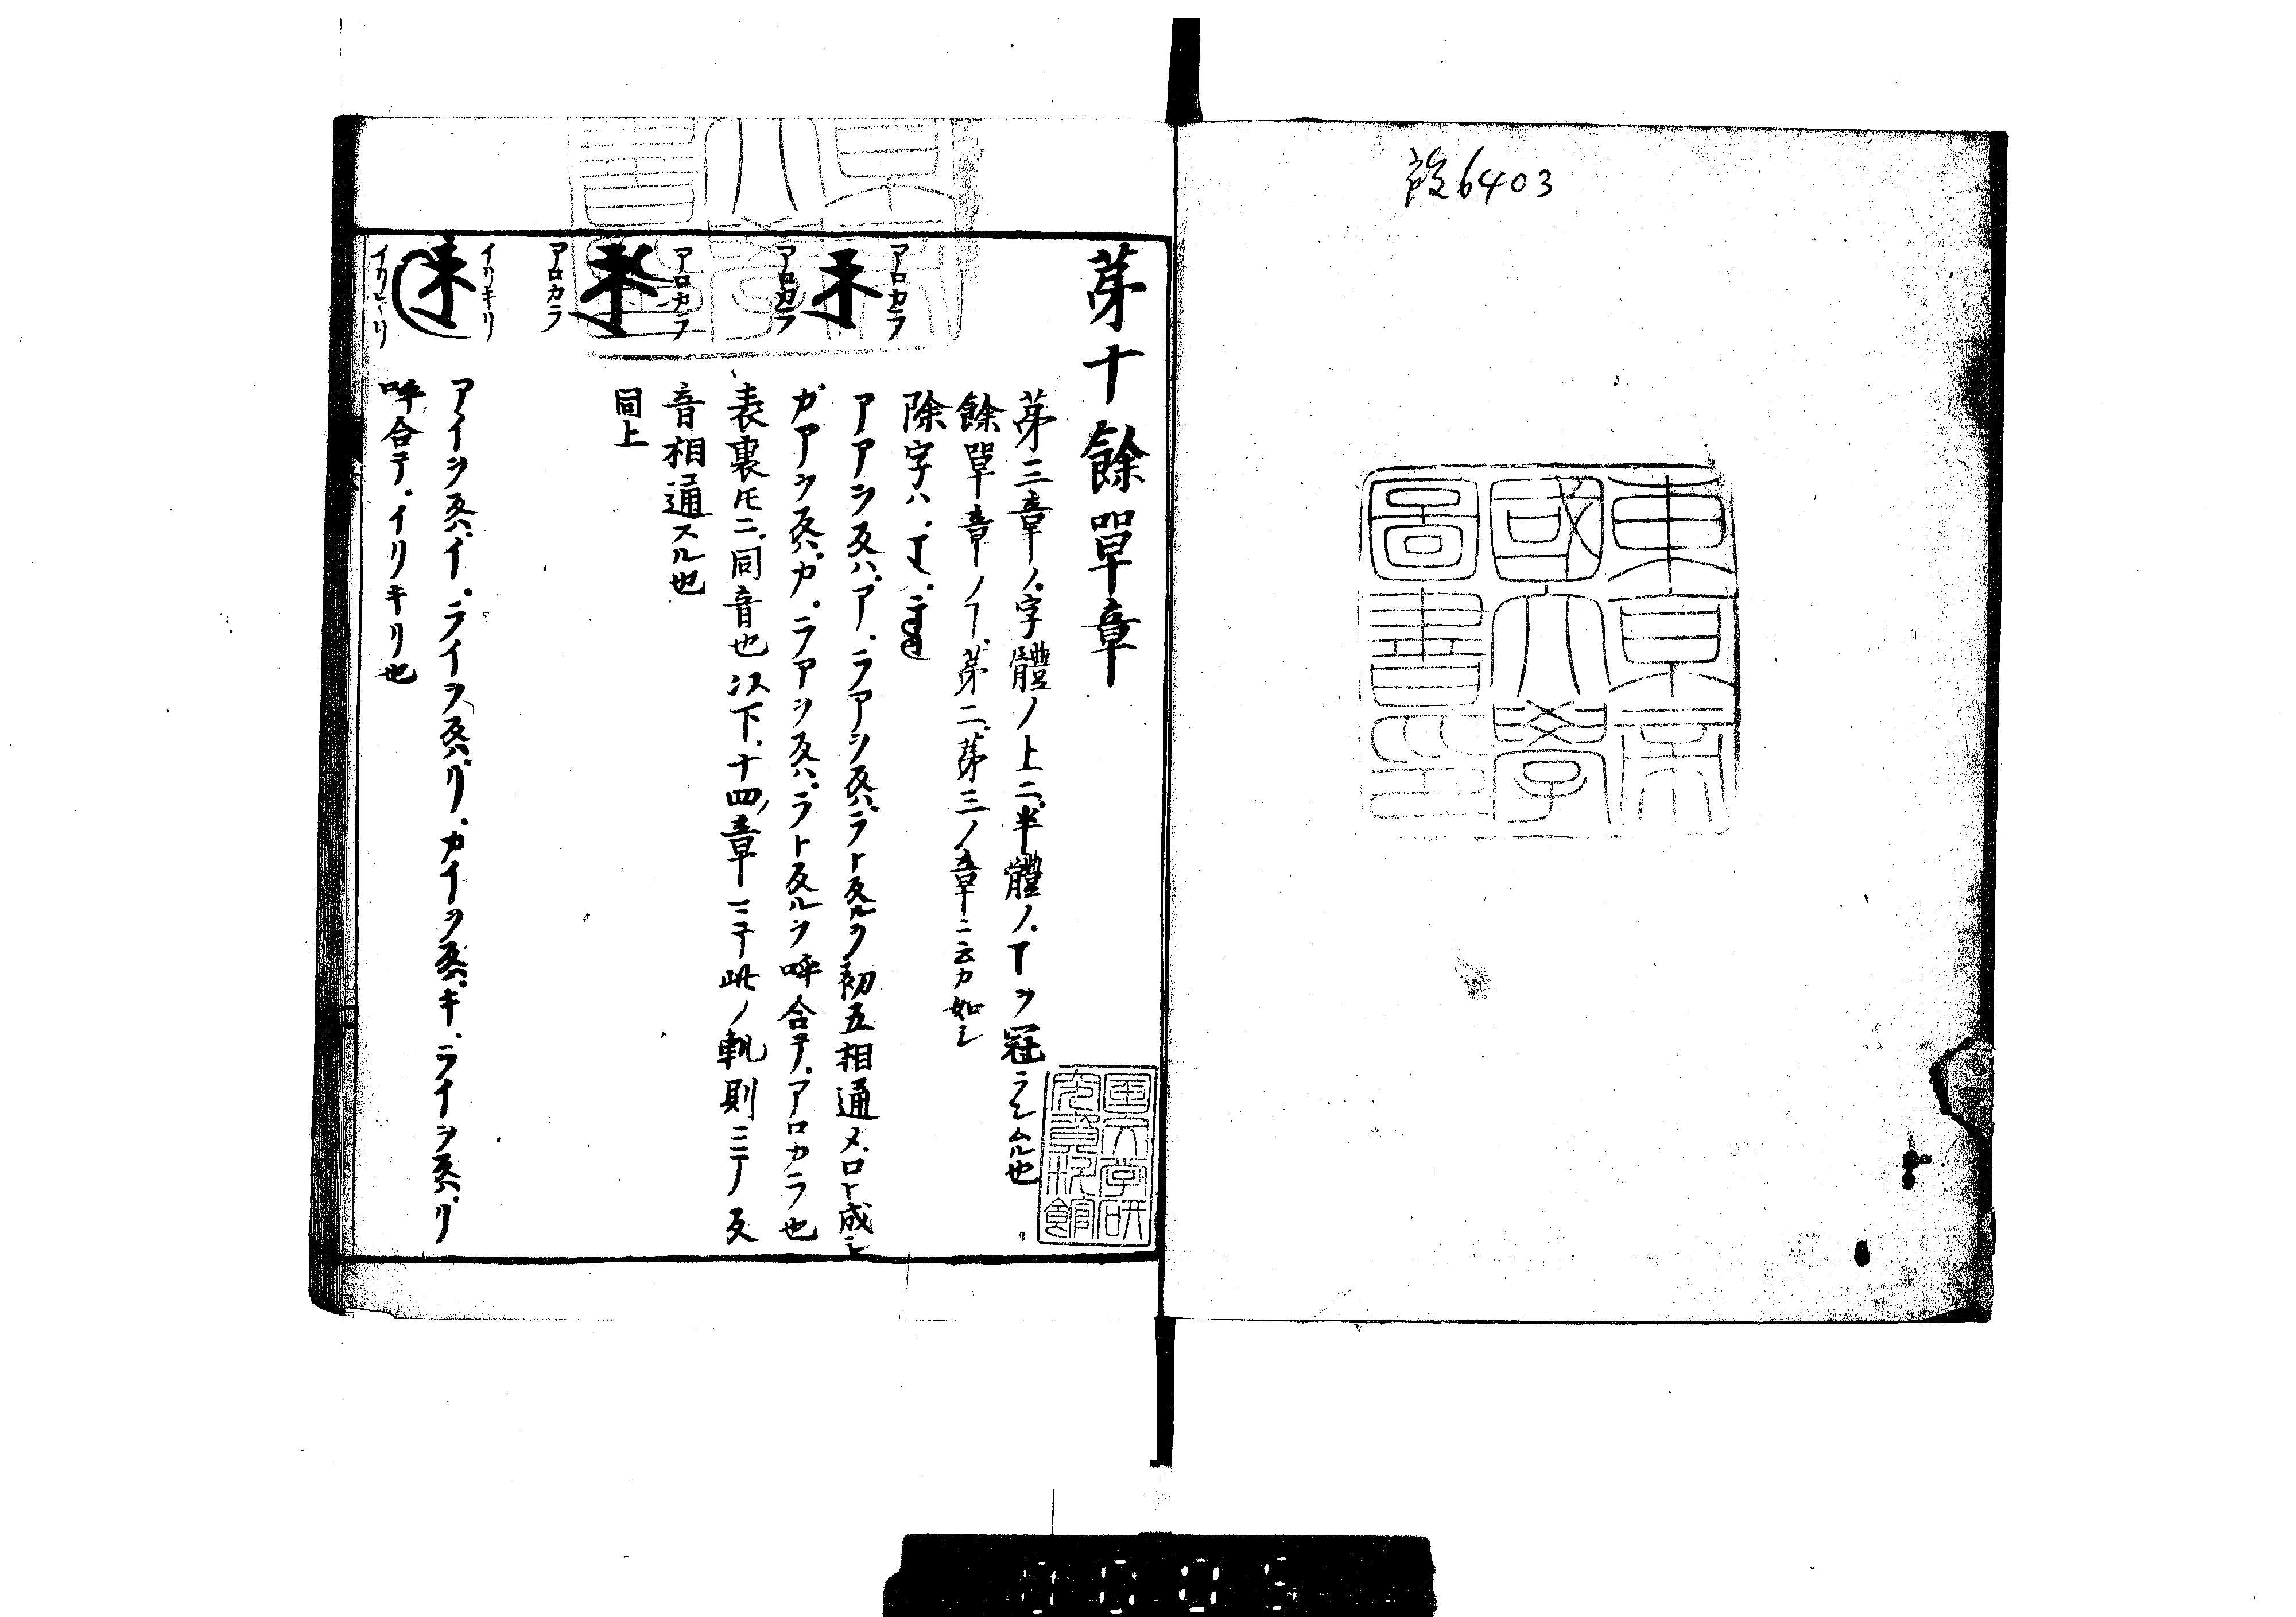 設6403
東京帝
國大學
圖書印
第十餘單章
第三章ノ字體ノ上ニ半體ノヲ冠ラシムル也
餘單章ノ丅第二第三ノ章ニ云カ如シ
除字ハ
アロカラ
アロカラ
アアヲ反ハアラアヲ反ハラト反ルヲ初五相通メロト成シ
カアヲ反ハカラアヲ反ハラト反ルヲ呼合テアロカラ也
表裏𪜈ニ同音也以下十四章ミナ此ノ軌則ニテ反
音相通スル也
アロカラ
アロカラ
同上
イリキリ
イリキリ
アイヲ反ハイライヲ反ハリカイヲ反ハキライヲ反ハリ
呼合テイリキリ也